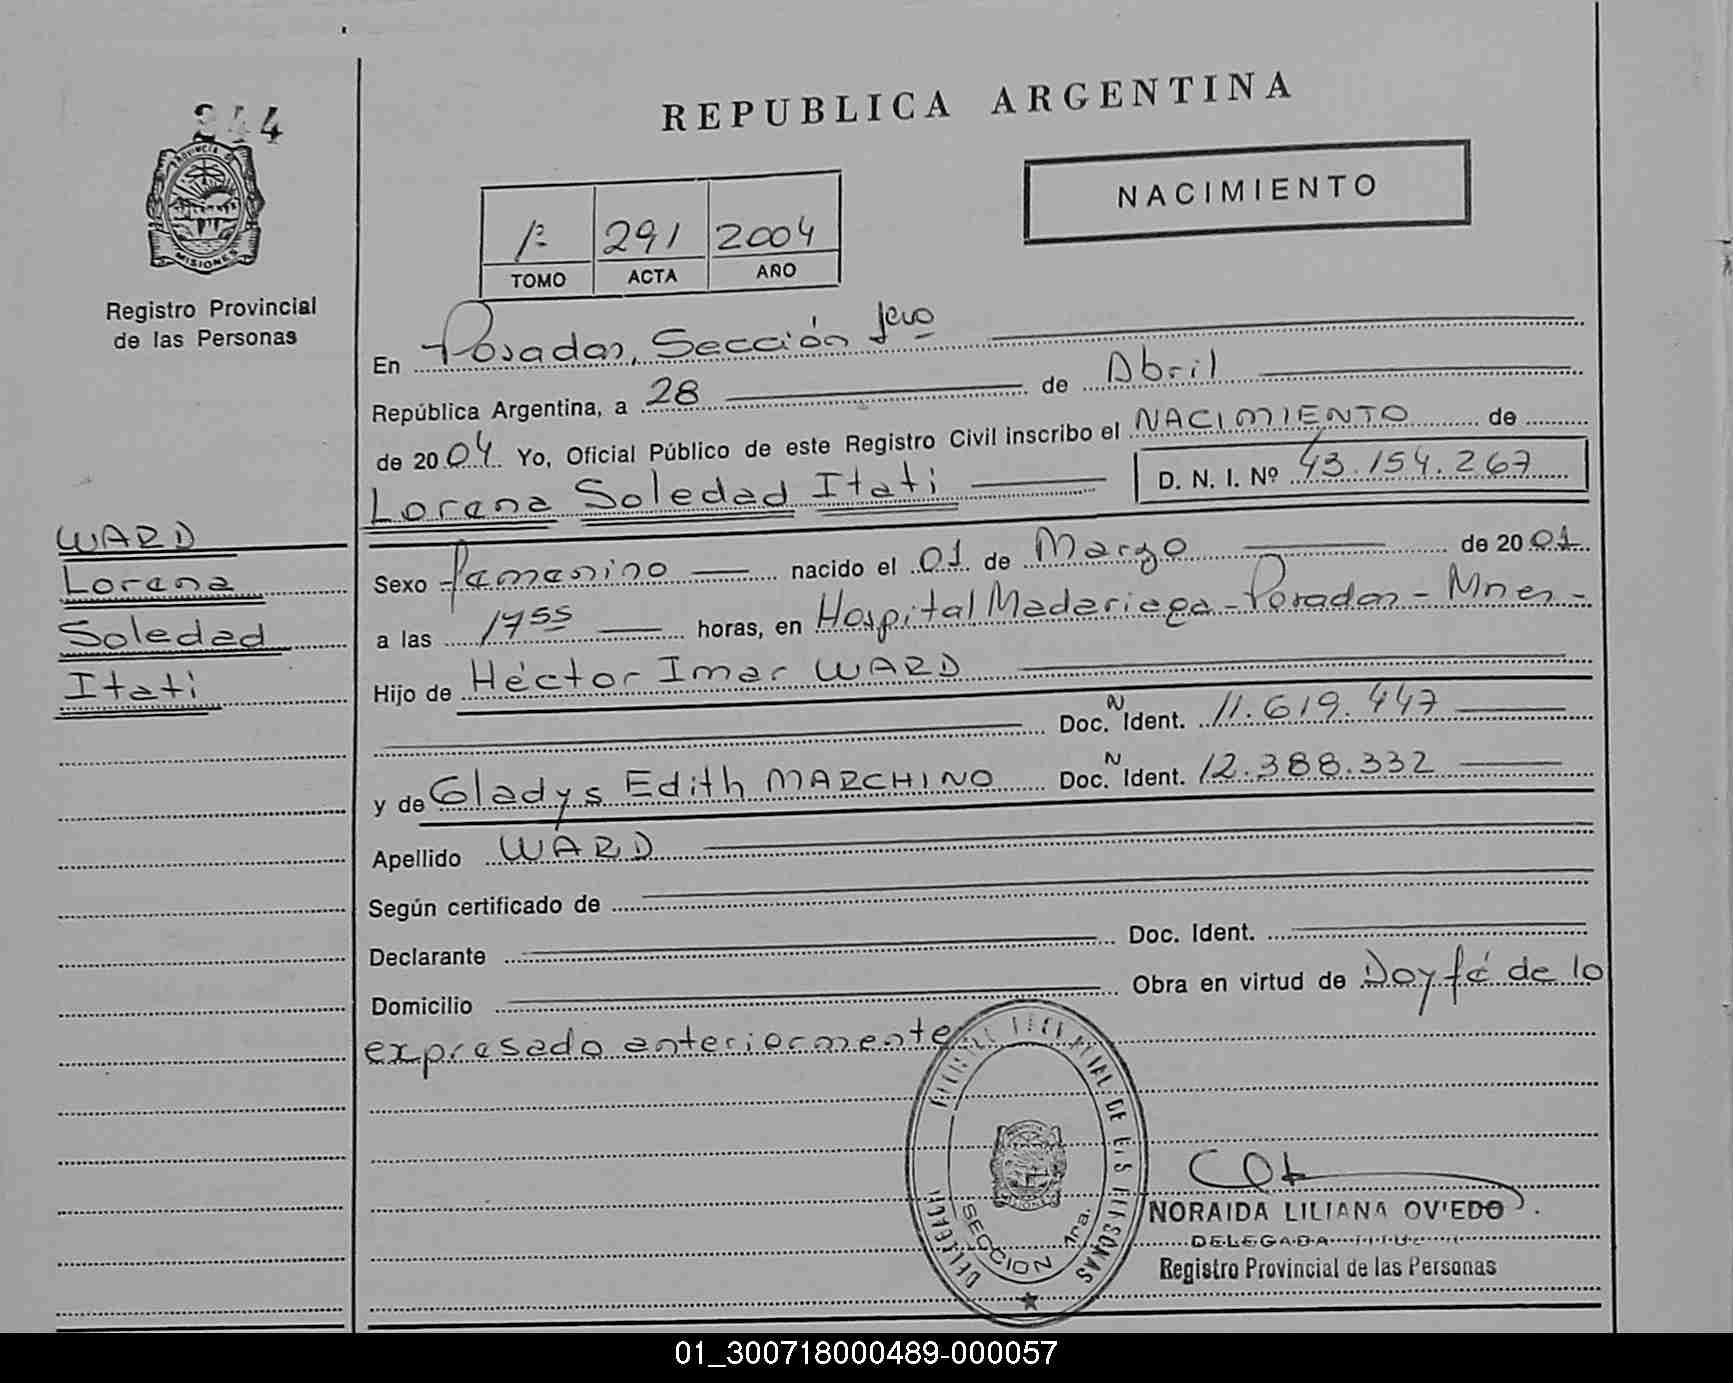 244
PROVINCIA DE
MISIONES
Registro Provincial
de las Personas
WARD
Lorena
Soledad
Itati
REPUBLICA ARGENTINA
NACIMIENTO
1º 291 2004
TOMO ACTA AÑO
En Posadas, Sección 1era
República Argentina, a 28 de Abril
de 2004 Yo, Oficial Público de este Registro Civil inscribo el NACIMIENTO de
Lorena Soledad Itati D. N. I. Nº 43.154.267
Sexo femenino nacido el 01 de Marzo de 2001
a las 1755 horas, en Hospital Madariaga - Posadas - Mnes -
Hijo de Héctor Imar WARD
Doc. N Ident. 11.619.447
y de Gladys Edith MARCHINO Doc. N Ident. 12.388.332
Apellido WARD
Según certificado de
Declarante Doc. Ident.
Domicilio Obra en virtud de Doy fé de lo
expresado anteriormente
DE LAS PERSONAS
SECCION 1ra.
NORAIDA LILIANA OVIEDO
DELEGADA
Registro Provincial de las Personas
01_300718000489-000057